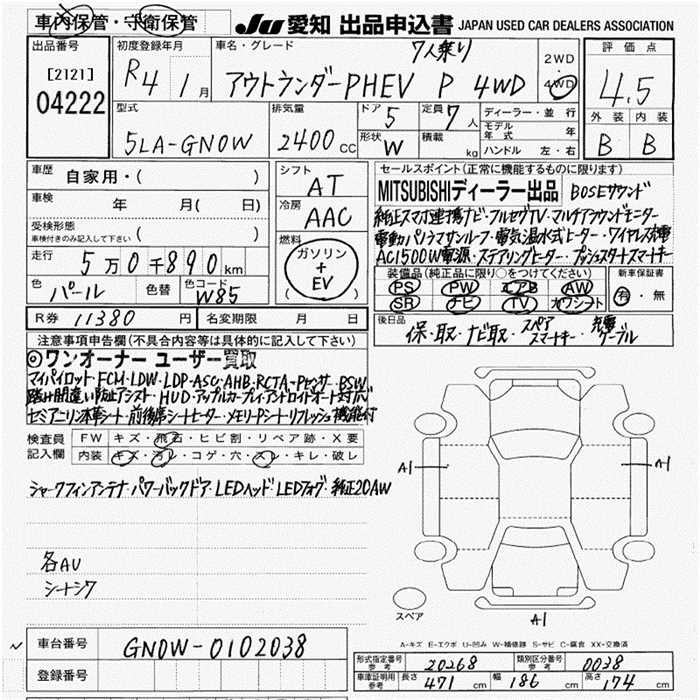 車内保管・守衛保管
JU 愛知 出品申込書 JAPAN USED CAR DEALERS ASSOCIATION
出品番号 初度登録年月 車名・グレード 7人乗り 評価点
[2121] R4 1月 アウトランダーPHEV P 4WD 2WD 4WD 4.5
04222 型式 排気量 ドア 5 定員 7人 ディーラー・並行 外装 内装
5LA-GN0W 2400cc 形状 W 積載 kg モデル年式 年 ハンドル 左・右 B B
車歴 自家用・( ) シフト AT セールスポイント(正常に機能するものに限ります)
車検 年 月( 日) 冷房 AAC MITSUBISHIディーラー出品 BOSEサウンド
受検形態 車検付きのみ記入して下さい ( ) 純正スマホ連携ナビ・フルセグTV・マルチアラウンドモニター
走行 5万0千890km 燃料 ガソリン+EV 電動パノラマサンルーフ・電気温水式ヒーター・ワイヤレス充電
AC1500W電源・ステアリングヒーター・プッシュスタートスマートキー
色 パール 色替 色コード W85 ( ) 装備品(純正品に限り○をつけてください) 新車保証書
PS PW エアB AW 有・無
SR ナビ TV カワシート
R券 11380円 名変期限 月 日 後日品 保・取・ナビ取・スペアスマートキー・充電ケーブル
注意事項申告欄(不具合内容等は具体的に記入して下さい)
◎ワンオーナー ユーザー買取
マイパイロット・FCM・LDW・LDP・ASC・AHB・RCTA・Pセンサー・BSW
踏み間違い防止アシスト・HUD・アップルカープレイ・アンドロイドオート対応
セミアニリン本革シート・前後席シートヒーター・メモリーPシートリフレッシュ機能付
検査員記入欄 FW キズ・飛石・ヒビ割・リペア跡・X要
内装 キズ・汚レ・コゲ・穴・スレ・キレ・破レ
シャークフィンアンテナ・パワーバックドア・LEDヘッド・LEDフォグ・純正20AW
A1 A1
各AU
シートシワ
スペア A1
A-キズ E-エクボ U-凹み W-補修跡 S-サビ C-腐食 XX-交換済
車台番号 GN0W-0102038
登録番号
形式指定番号 参考 20268 類別区分番号 参考 0038
車庫証明用 参考 長さ 471cm 幅 186cm 高さ 174cm